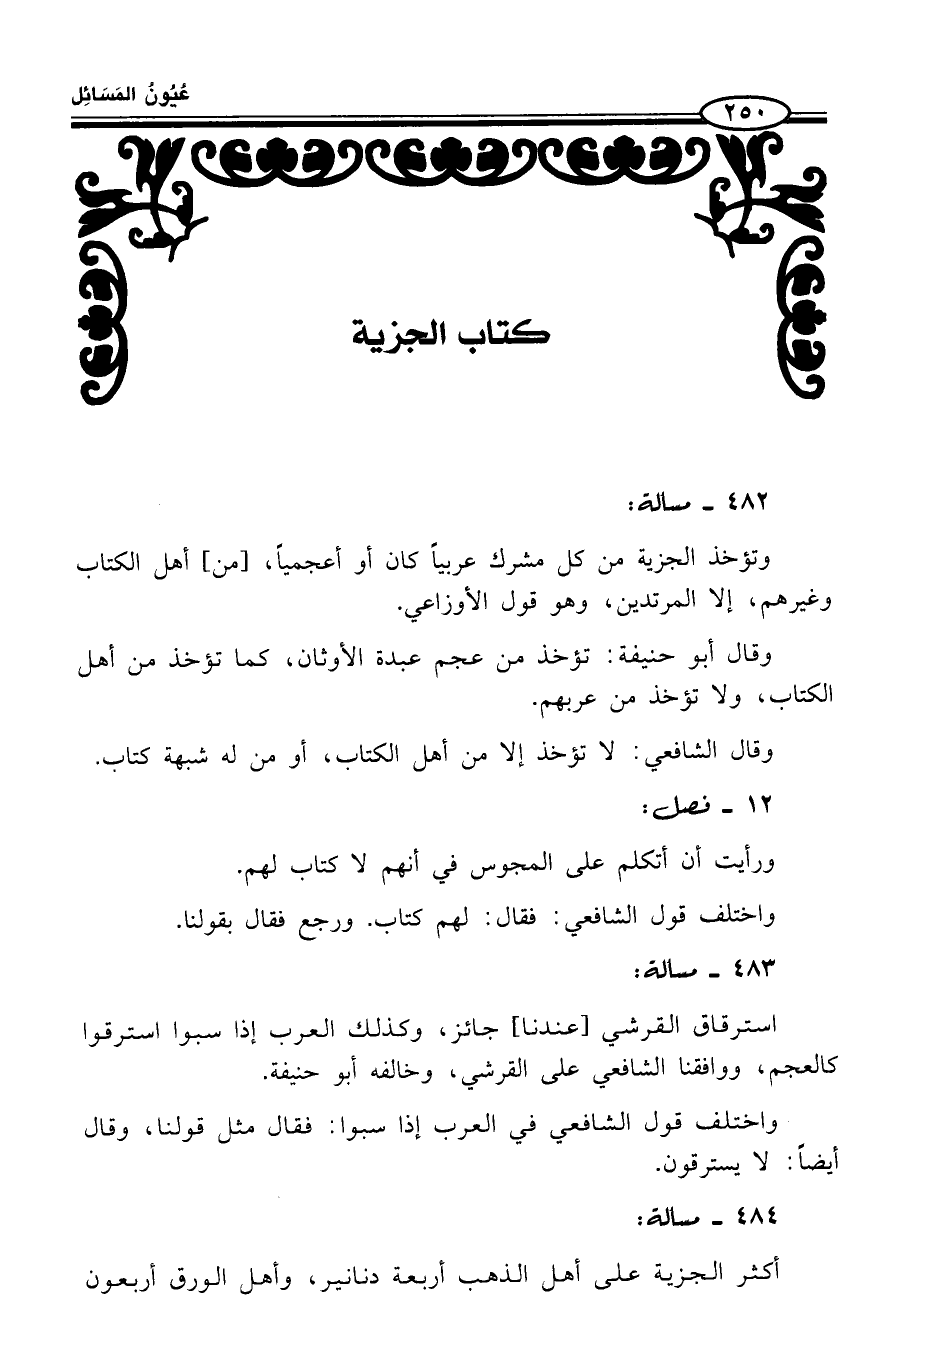 عُيُونُ المَسَائِل
٢٥٠
كتاب الجزية
٤٨٢ ـ مسألة:
وتؤخذ الجزية من كل مشرك عربياً كان أو أعجمياً، [من] أهل الكتاب
وغيرهم، إلا المرتدين، وهو قول الأوزاعي.
وقال أبو حنيفة: تؤخذ من عجم عبدة الأوثان، كما تؤخذ من أهل
الكتاب، ولا تؤخذ من عربهم.
وقال الشافعي: لا تؤخذ إلا من أهل الكتاب، أو من له شبهة كتاب.
١٢ ـ فصل:
ورأيت أن أتكلم على المجوس في أنهم لا كتاب لهم.
واختلف قول الشافعي: فقال: لهم كتاب. ورجع فقال بقولنا.
٤٨٣ ـ مسألة:
استرقاق القرشي [عندنا] جائز، وكذلك العرب إذا سبوا استرقوا
كالعجم، ووافقنا الشافعي على القرشي، وخالفه أبو حنيفة.
واختلف قول الشافعي في العرب إذا سبوا: فقال مثل قولنا، وقال
أيضاً: لا يسترقون.
٤٨٤ ـ مسألة:
أكثر الجزية على أهل الذهب أربعة دنانير، وأهل الورق أربعون